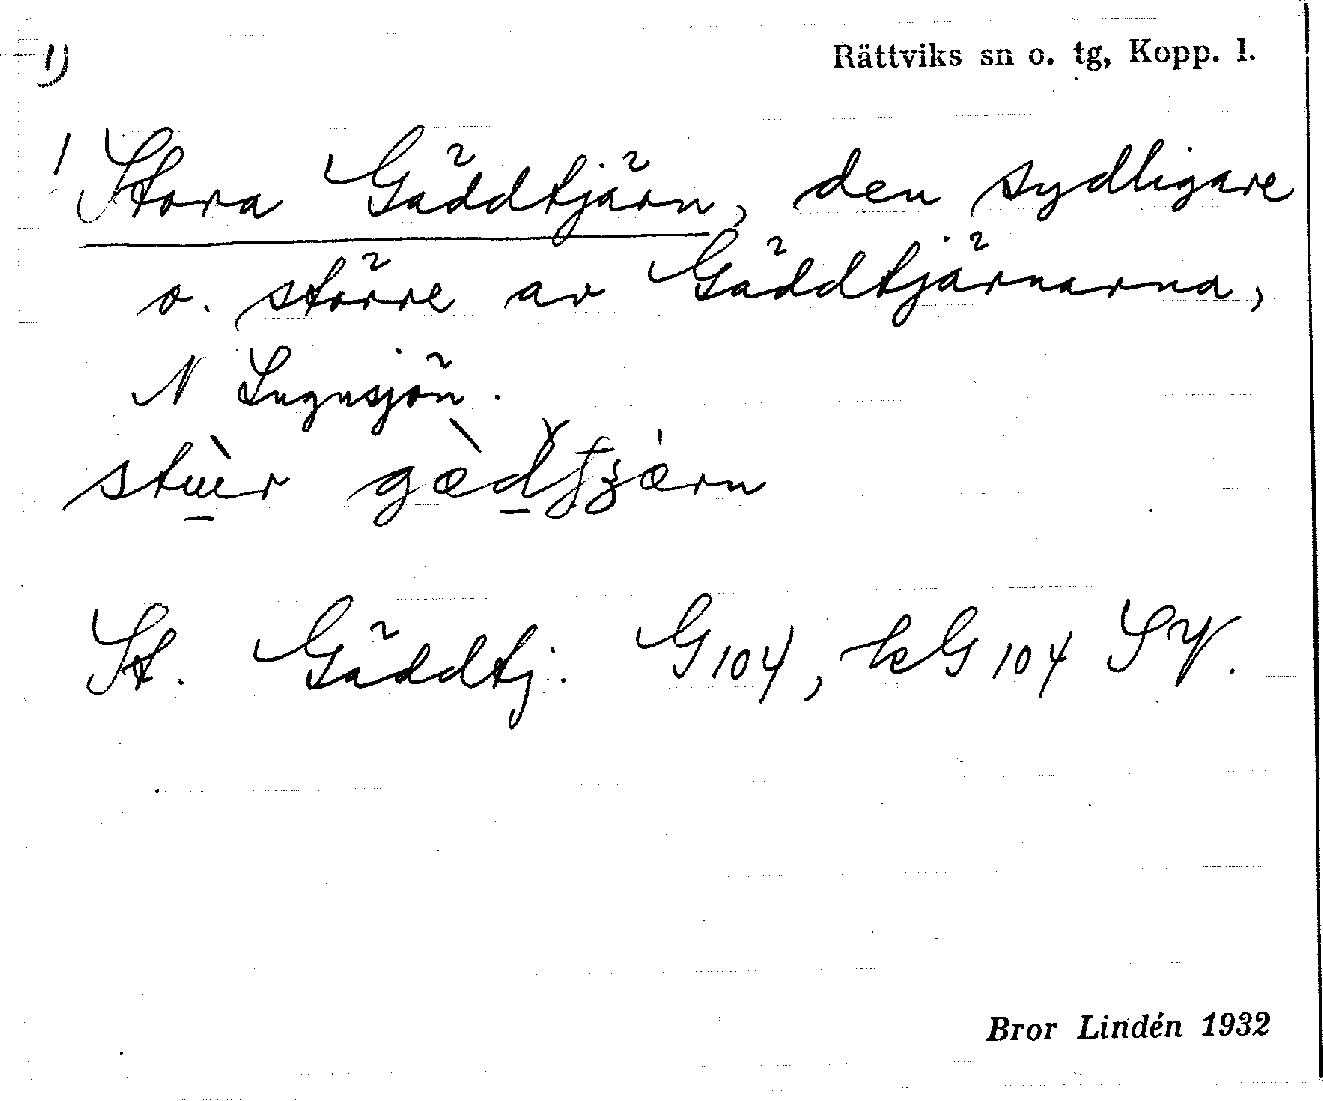 1) Rättviks sn o. tg, Kopp. l.
1 Stora Gäddtjärn, den sydligare
o. större av Gäddtjärnarna,
N Lugnsjön.
St. Gäddtj. G104, kG104 SV.
Bror Lindén 1932